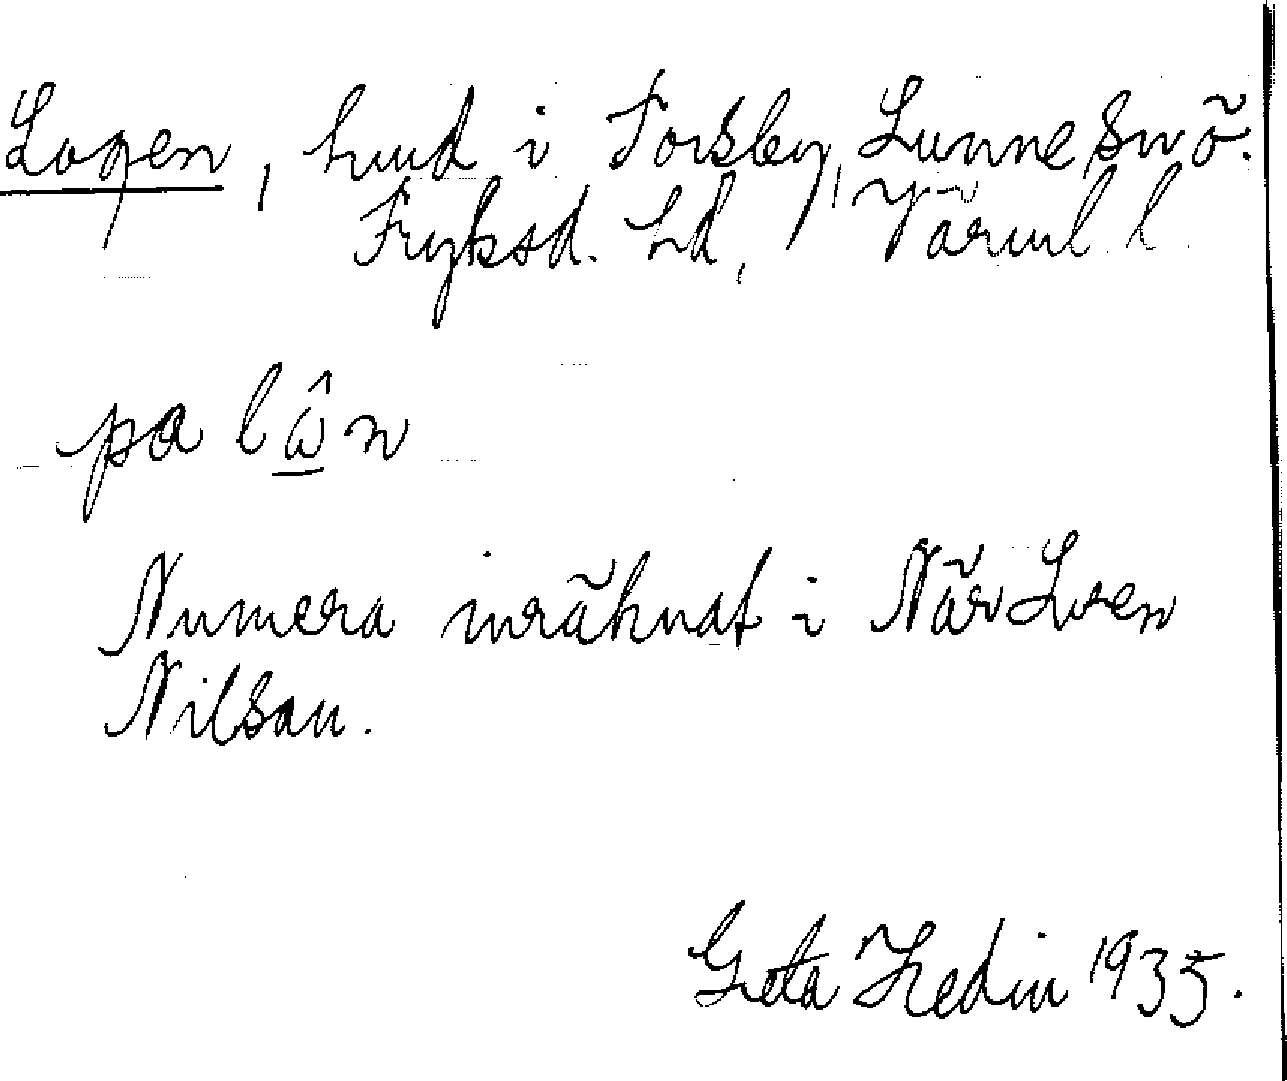 Logen, hmd i Forsby, Sunne sn ö.
Fryksd. hd, Värml l.
pa lω̂n
Numera inräknat i När Sven
Nilsan.
Greta Hedin 1935.